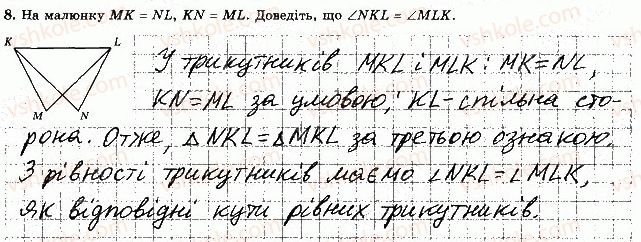 8. На малюнку MK = NL, KN = ML. Доведіть, що ∠NKL = ∠MLK.
K L
M N
У трикутників MKL і MLK : MK=NL,
KN=ML за умовою, KL-спільна сто-
рона. Отже, △NKL=△MKL за третьою ознакою.
З рівності трикутників маємо ∠NKL=∠MLK,
як відповідні кути рівних трикутників.